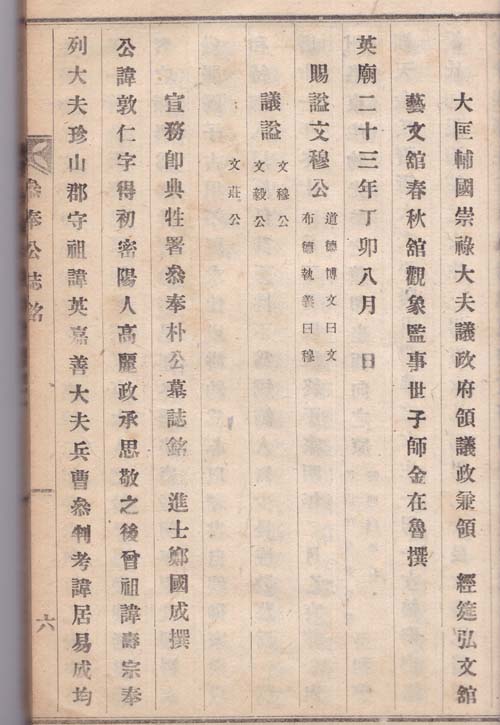 大匡輔國崇祿大夫議政府領議政兼領 經筵弘文館
藝文館春秋館觀象監事世子師金在魯撰
英廟二十三年丁卯八月 日
賜謚文穆公 道德博文曰文 布德執義曰穆
議謚 文穆公 文毅公 文莊公
宣務郎典牲署叅奉朴公墓誌銘 進士鄭國成撰
公諱敦仁字得初密陽人高麗政承思敬之後曾祖諱壽宗奉
列大夫珍山郡守祖諱英嘉善大夫兵曹叅判考諱居易成均
叅奉公誌銘
六